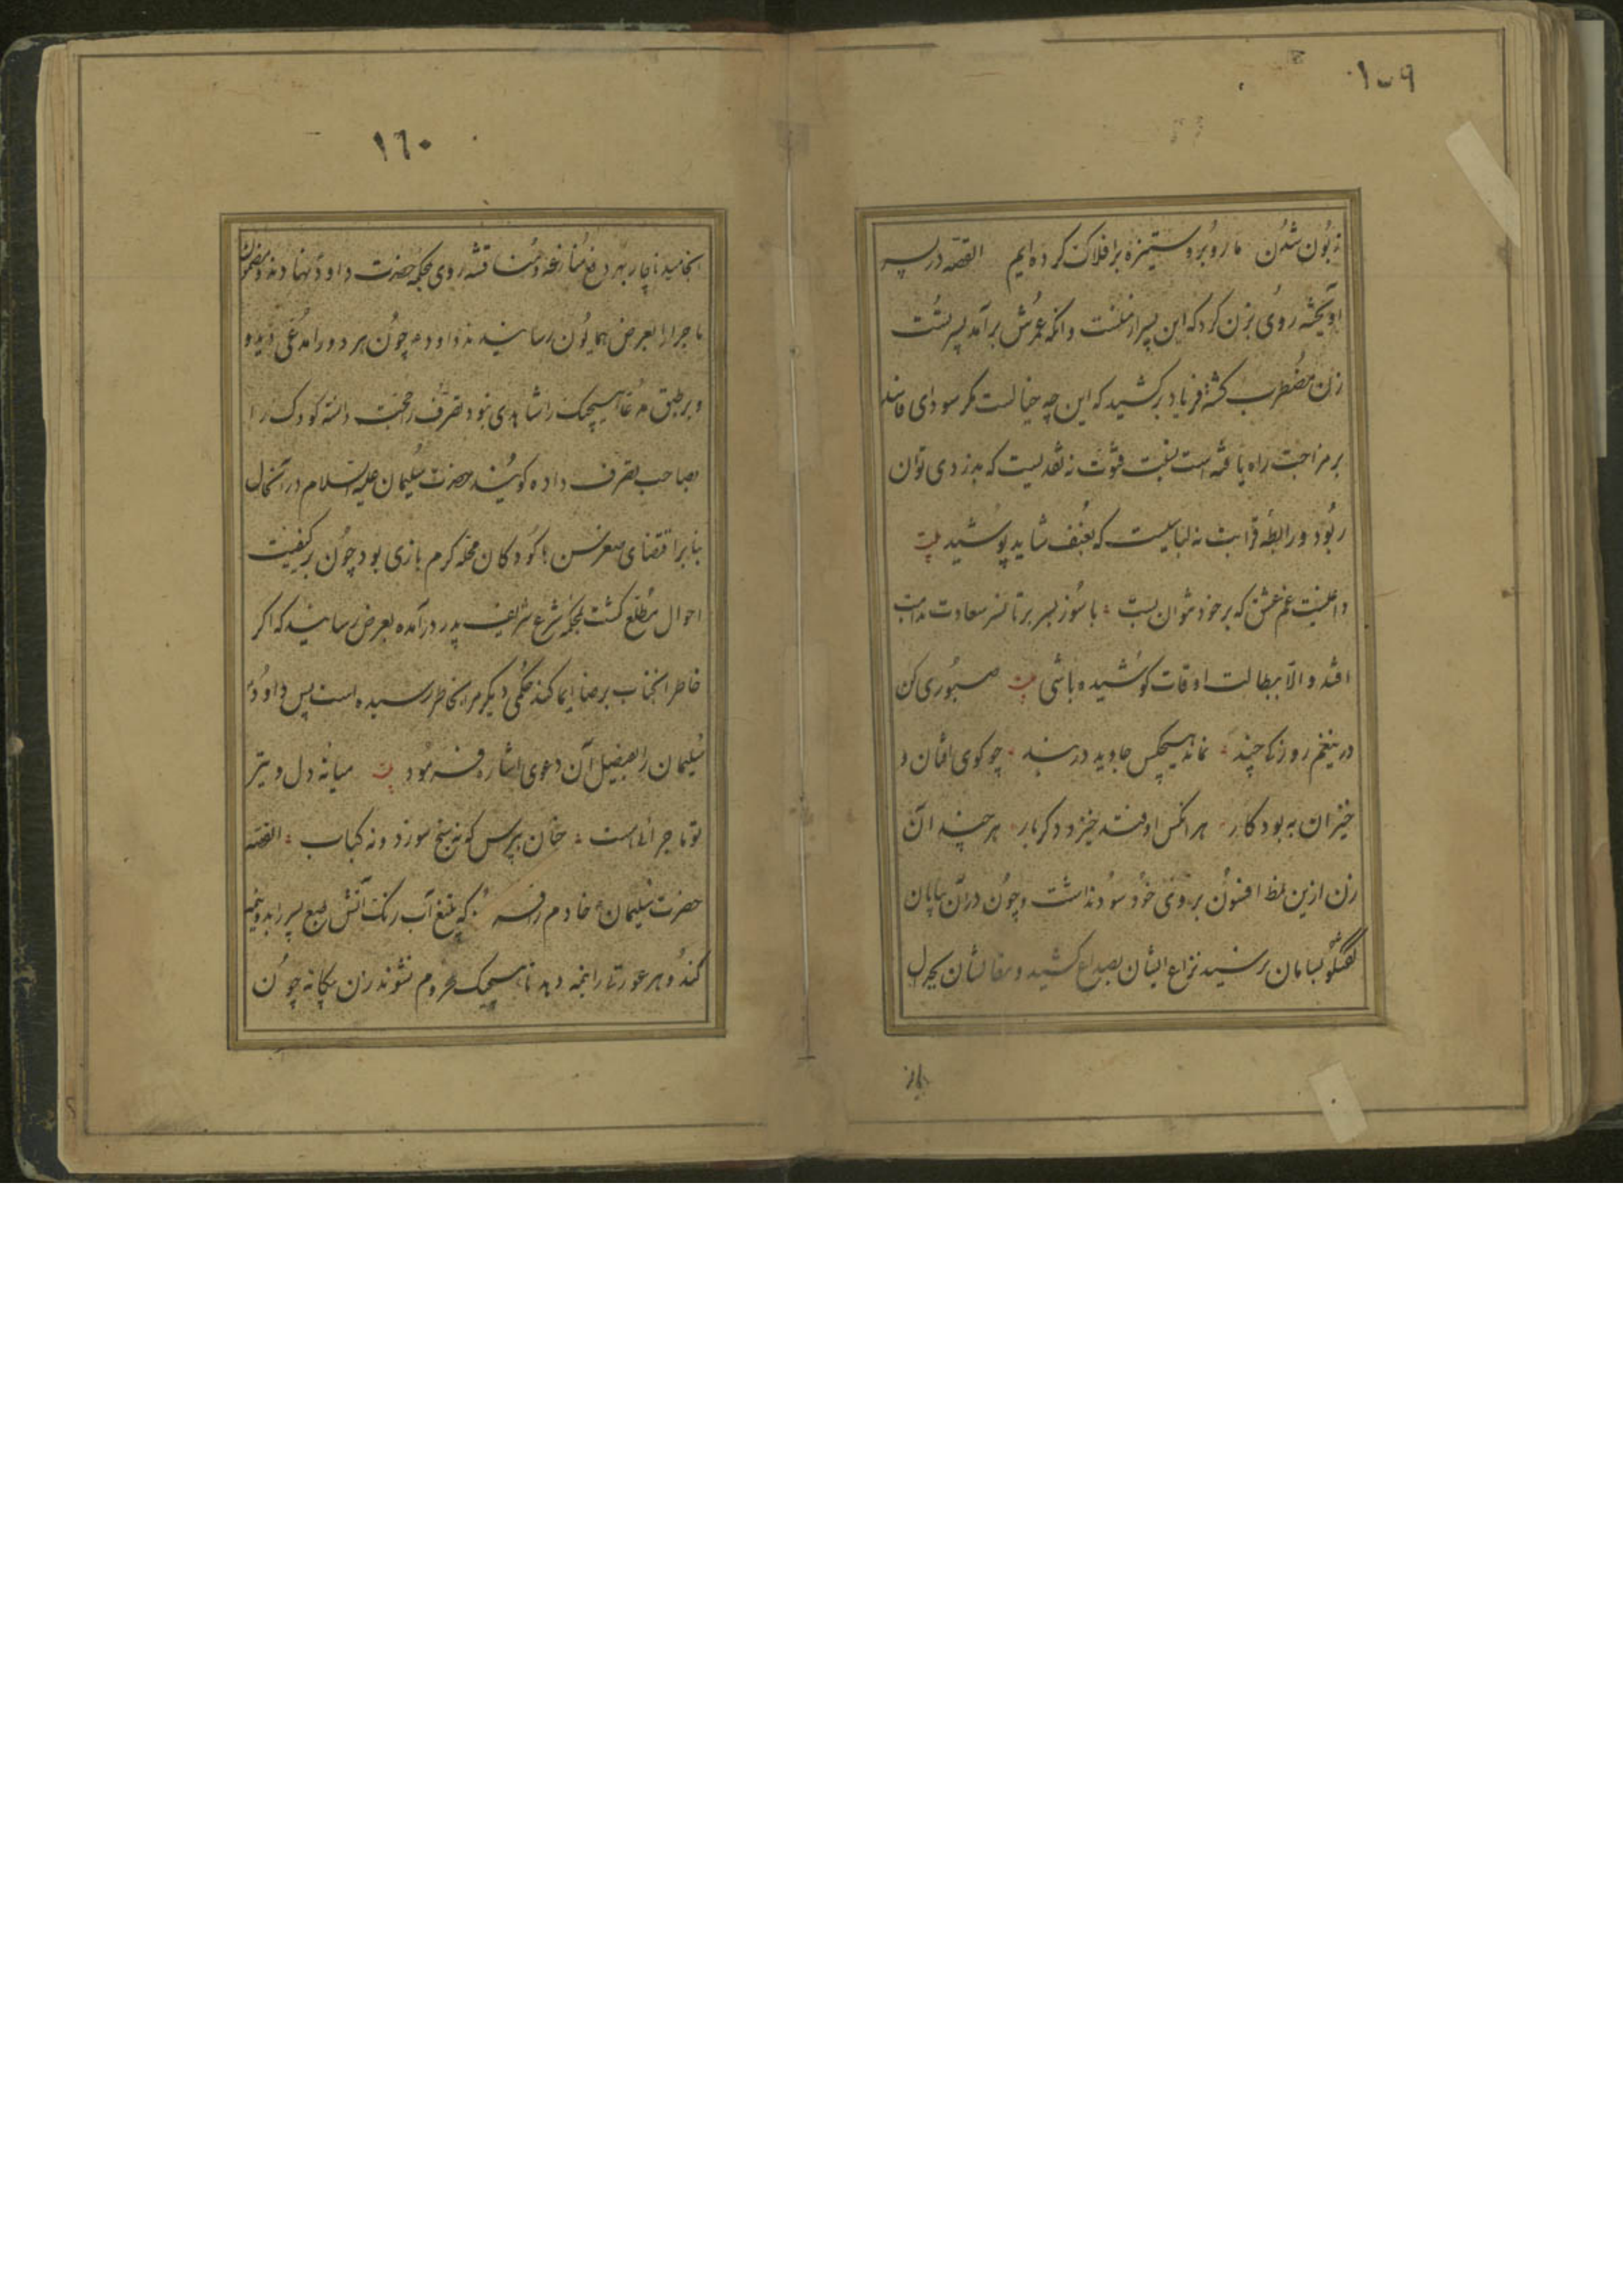 ۱۵۹
زبون شدن ما روبرو ستیزه بر افلاک کرده‌ایم القصه در پسر
آویخته روی بزن کرد که این پسر از منست و آنکه عمرش برآمد پسر تست
زن مضطرب گشته فریاد برکشید که این چه خیالست مگر سودای فاسد
بر مزاجت راه یافته است نسبت فتوت نه نقدیست که بدزدی توان
ربود و رابطه قرابت نه لباسیست که بعنف شاید پوشید بیت
داغیست غم عشق که بر خود نتوان بست با سوز بسر بر تا سعادت بدست
افتد و الا ببطالت اوقات کوشیده باشی بیت صبوری کن
درین غم روزکی چند نماند هیچکس جاوید در بند چو گوی افتان و
خیزان به بود کار هر آنکس اوفتد خیزد دگر بار هر چند آن
زن ازین نمط افسون بر وی خواند سود نداشت و چون در آن بیابان
گفتگو بسامان نرسید نزاع ایشان بصداع کشید و مقالشان بجدل
۱٦۰
انجامید ناچار بهر دفع منازعه و مناقشه روی بمحکمه حضرت داود نهادند و مضمون
ماجرا را بعرض همایون رسانیدند داود چون هر دو را مدعی دید و
و بر طبق مدعا هیچیک را شاهدی نبود تصرف را حجت دانسته کودک را
بصاحب تصرف داده گویند حضرت سلیمان علیه السلام در آنحال
بنابر اقتضای صغر سن با کودکان محله گرم بازی بود چون بر کیفیت
احوال مطلع گشت بمحکمه شرع شریف پدر درآمده بعرض رسانید که اگر
خاطر آنجناب برضا ایما کند حکمی دیگر مرا بخاطر رسیده است پس داود
سلیمان را بفیصل آن دعوی اشاره فرمود بیت میانه دل و تیر
تو ماجرائی هست چنان بپرس که نه سیخ سوزد و نه کباب القصه
حضرت سلیمان خادم را فرمود که بتیغ آب رنگ آتش طبع پسر را بدو نیمه
کند و هر عورت را نیمه دهد تا هیچیک محروم نشوند زن بیگانه چون